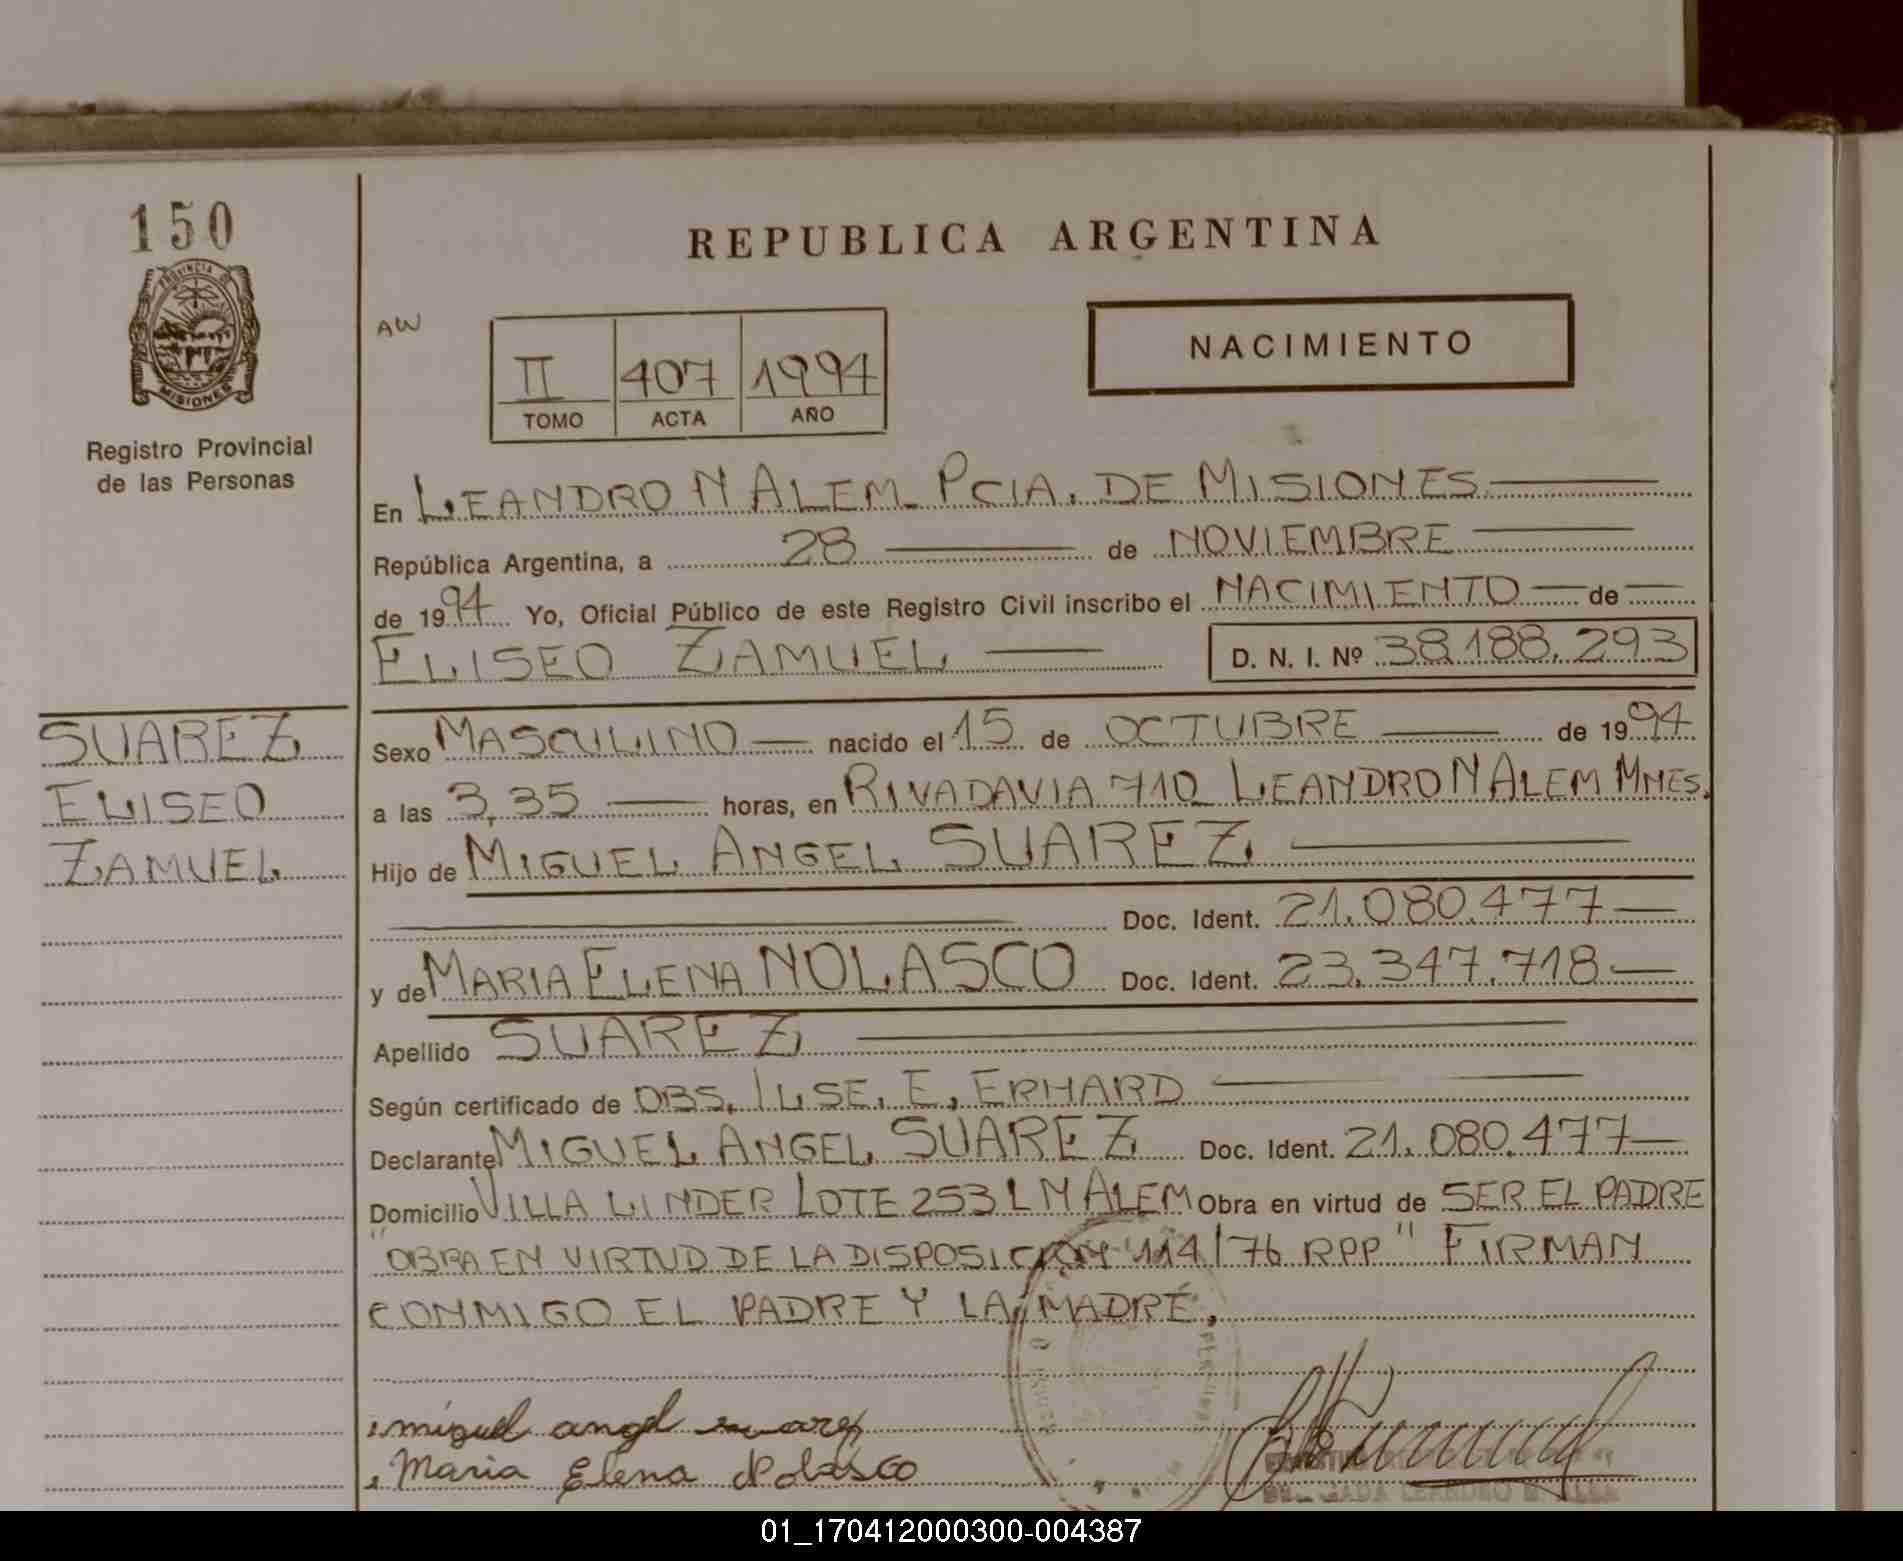 150
PROVINCIA DE
MISIONES
Registro Provincial
de las Personas
SUAREZ
ELISEO
ZAMUEL
REPUBLICA ARGENTINA
AW
II 407 1994
TOMO ACTA AÑO
NACIMIENTO
En LEANDRO N ALEM - PCIA. DE MISIONES
República Argentina, a 28 de NOVIEMBRE
de 1994 Yo, Oficial Público de este Registro Civil inscribo el NACIMIENTO de
ELISEO ZAMUEL D. N. I. Nº 38.188.293
Sexo MASCULINO nacido el 15 de OCTUBRE de 1994
a las 3,35 horas, en RIVADAVIA 710 LEANDRO N ALEM MNES.
Hijo de MIGUEL ANGEL SUAREZ
Doc. Ident. 21.080.477
y de MARIA ELENA NOLASCO Doc. Ident. 23.347.718
Apellido SUAREZ
Según certificado de OBS. ILSE. E. ERHARD
Declarante MIGUEL ANGEL SUAREZ Doc. Ident. 21.080.477
Domicilio VILLA LINDER LOTE 253 L N ALEM Obra en virtud de SER EL PADRE
"OBRA EN VIRTUD DE LA DISPOSICION 114/76 RPP" FIRMAN
CONMIGO EL PADRE Y LA MADRE.
miguel angel suarez
Maria Elena Nolasco
01_170412000300-004387